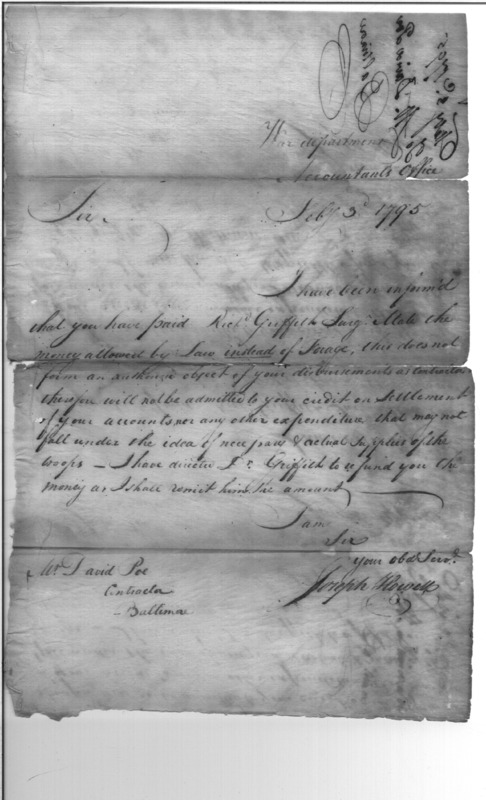 War department
Accountants Office
Feby 3d 1795
Sir,
I have been inform'd
that you have paid Richd Griffith Surgs Mate the
money allowed by Law instead of Forage, this does not
form an object of your disbursements as Contractor
therefore will not be admitted to your credit on settlement
of your accounts nor any other expenditure that may not
fall under the idea of necessary & actual Supplies of the
troops — I have directed Dr. Griffith to refund you the
money as I shall remit him the amount
I am
Sir
your obdt Servt
Joseph Howell
Mr. David Poe
Contractor
Baltimore